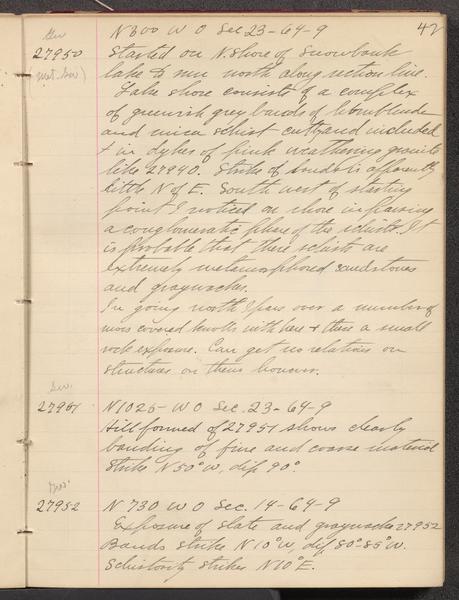 N 300 W 0 Sec 23-64-9 42
27950 Started on N. shore of Snowbank
lake to run north along section line.
Lake shore consists of a complex
of greenish grey bands of hornblende
and mica schist cut by and included
+ in dykes of pink weathering granite
like 27940. Strike of bands is apparently
little N of E. South west of starting
point I noticed on shore in passing
a conglomeratic phase of the schists. It
is probable that these schists are
extremely metamorphosed sandstones
and graywacke.
In going north I pass over a number of
moss covered knolls with here + there a small
rock exposure. Can get no relations or
structures on them however.
27951 N 1025 - W 0 Sec. 23-64-9
Hill formed of 27951 shows clearly
banding of fine and coarse material
Strike N 50° W, dip 90°.
27952 N 730 W 0 Sec. 14-64-9
Exposure of slate and graywacke 27952
Bands strike N 10° W, dip 80°-85° W.
Schistosity strikes N 10° E.